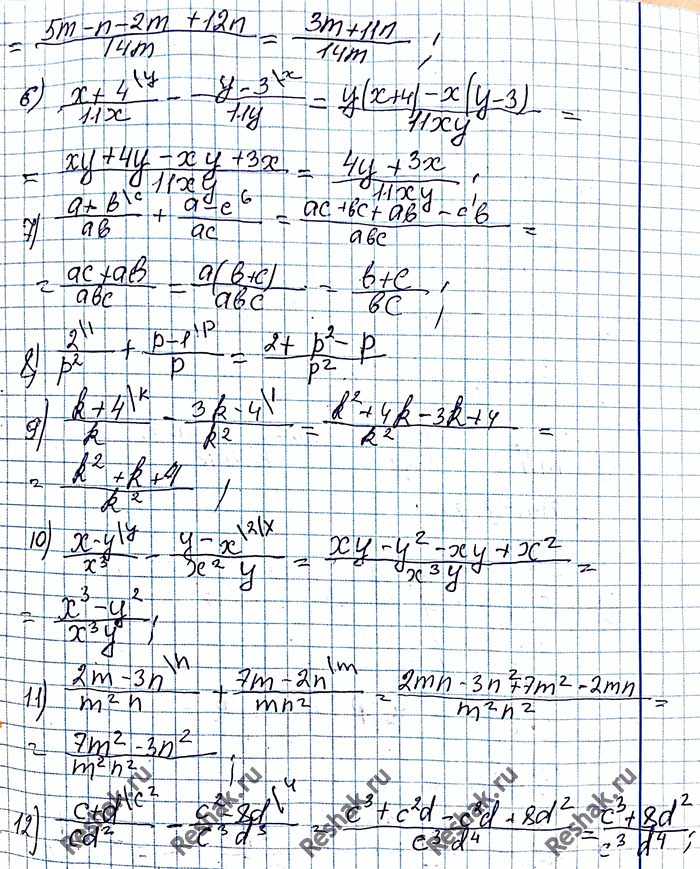 = (5m-n-2m+12n)/14m = (3m+11n)/14m ;
6) (x+4\y)/11x - (y-3\x)/11y = (y(x+4)-x(y-3))/11xy =
= (xy+4y-xy+3x)/11xy = (4y+3x)/11xy ;
7) (a+b\c)/ab + (a-c b)/ac = (ac+bc+ab-cb)/abc =
= (ac+ab)/abc = a(b+c)/abc = (b+c)/bc ;
8) 2\1/p² + (p-1\p)/p = (2+p²-p)/p²
9) (k+4\k)/k - (3k-4\1)/k² = (k²+4k-3k+4)/k² =
= (k²+k+4)/k² ;
10) (x-y\y)/x³ - (y-x\x)/x²y = (xy-y²-xy+x²)/x³y =
= (x³-y²)/x³y ;
11) (2m-3n\n)/m²n + (7m-2n\m)/mn² = (2mn-3n²+7m²-2mn)/m²n² =
= (7m²-3n²)/m²n² ;
12) (c+d\c²)/cd² - (c²-8d\4)/c³d³ = (c³+c²d-c²d+8d²)/c³d⁴ = (c³+8d²)/c³d⁴ ;
Reshak.ru Reshak.ru Reshak.ru Reshak.ru